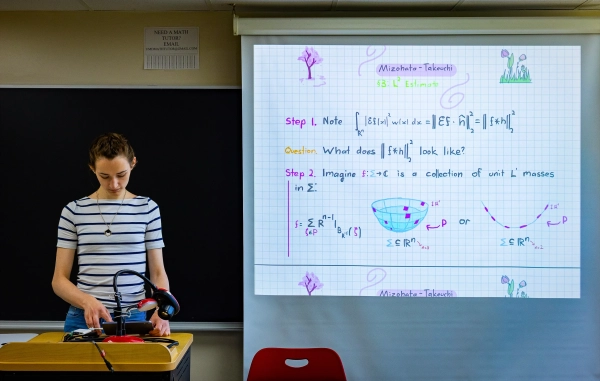 NEED A MATH
TUTOR?
EMAIL
Mizohata-Takeuchi
§3. L² Estimate
Step 1. Note ∫_{ℝⁿ} |Ef(x)|² w(x) dx = ||Ef · ĥ||₂² = ||f*h||₂²
Question: What does ||f*h||₂² look like?
Step 2. Imagine f: Σ→ℂ is a collection of unit L¹ masses
in Σ:
f = Σ_{ξ∈P} R^{n-1} |_{B_{R^{-1}}(ξ)}
P or P
Σ ⊆ ℝⁿ Σ ⊆ ℝⁿ
Mizohata-Takeuchi